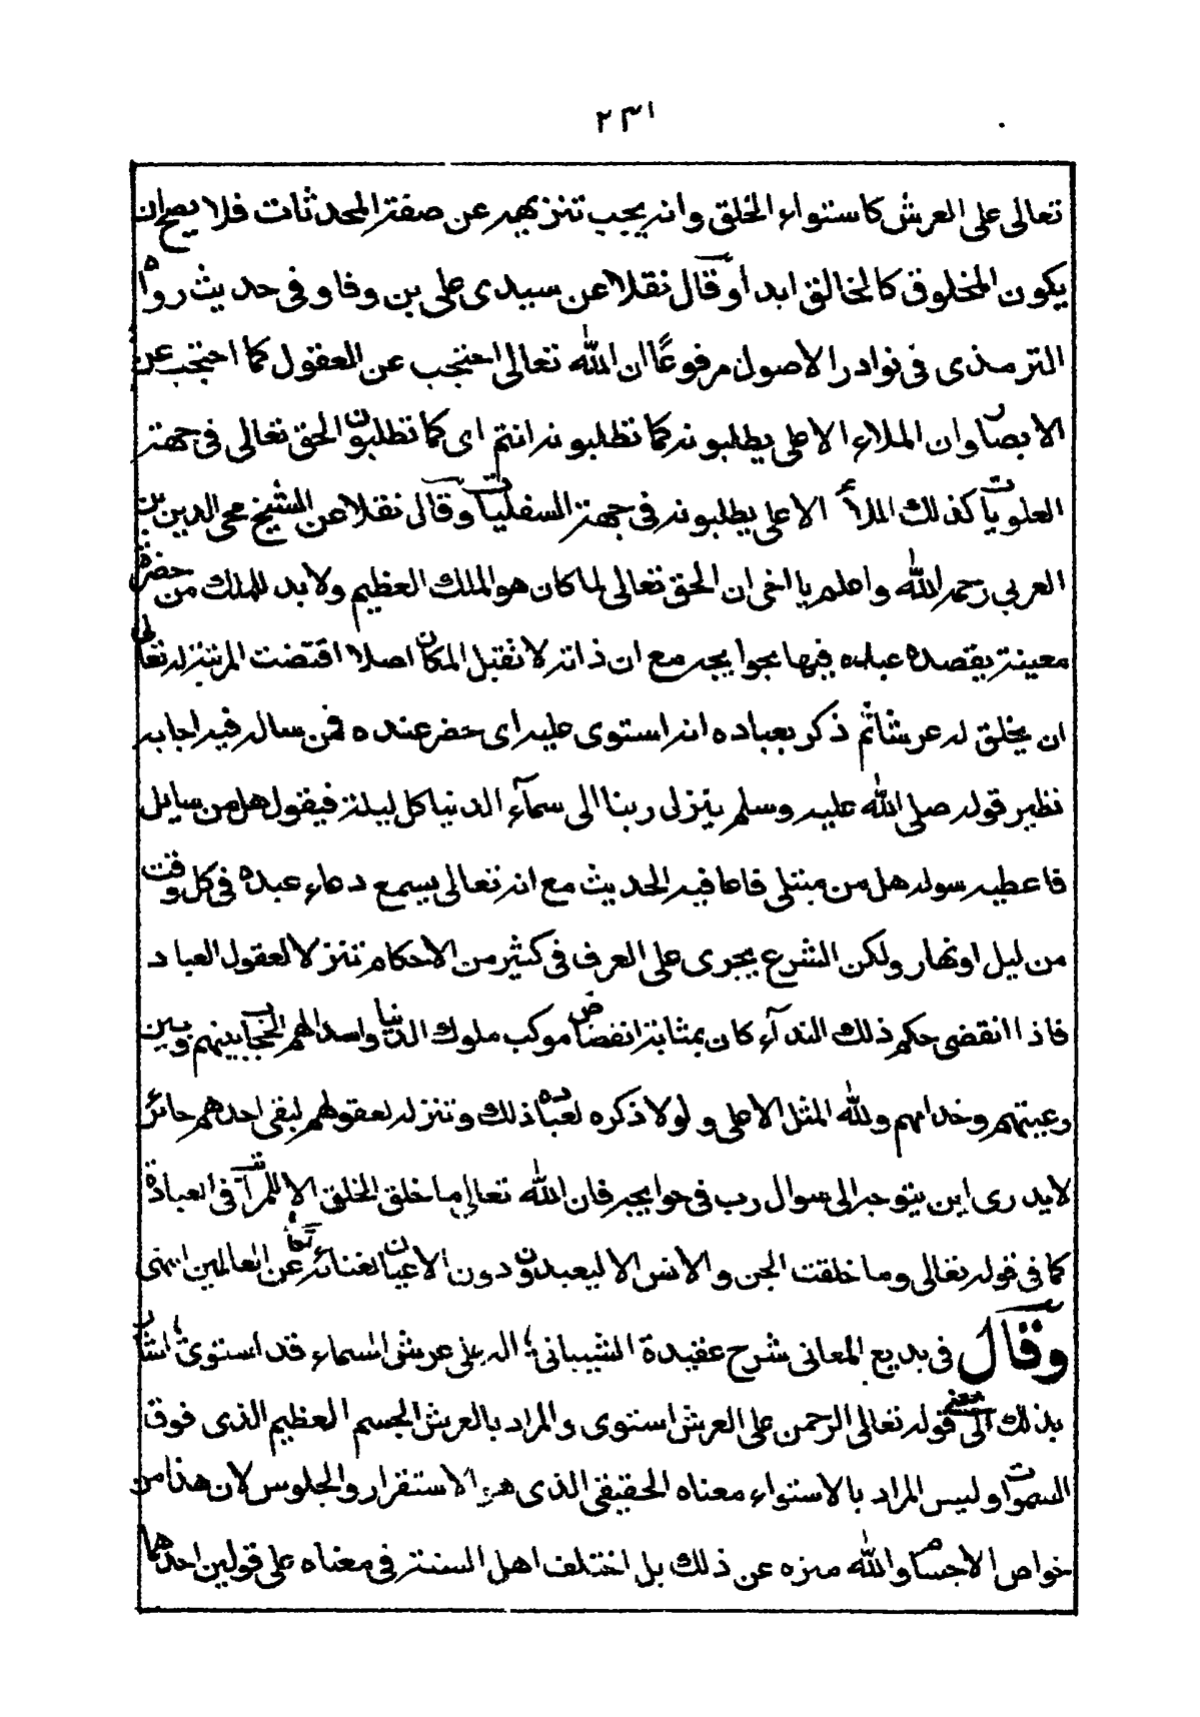 ٢٣١
تعالى على العرش كاستواء الخلق وانه يجب تنزيهه عن صفة المحدثات فلا يصح ان
يكون المخلوق كالخالق ابدا وقال نقلا عن سيدي علي بن وفا وفي حديث رواه
الترمذى في نوادر الاصول مرفوعًا ان الله تعالى احتجب عن العقول كما احتجب عن
الابصار وان الملاء الاعلى يطلبونه كما تطلبونه انتم اى كما تطلبون الحق تعالى في جهة
العلويات كذلك الملأ الاعلى يطلبونه في جهة السفليات وقال نقلا عن الشيخ محى الدين بن
العربي رحمه الله واعلم يا اخى ان الحق تعالى لما كان هو الملك العظيم ولابد للملك من حضرة
معينة يقصده عباده فيها بحوايجه مع ان ذاته لا تقبل المكان اصلا اقتضت المرتبة له تعالى
ان يخلق له عرشا ثم ذكر بعباده انه استوى عليه اى حضر عنده فمن ساله فيه اجابه
نظير قوله صلى الله عليه وسلم ينزل ربنا الى سمآء الدنيا كل ليلة فيقول هل من سايل
فاعطيه سوله هل من مبتلى فاعافيه الحديث مع انه تعالى يسمع دعاء عبده في كل وقت
من ليل او نهار ولكن الشرع يجرى على العرف في كثير من الاحكام تنزلا لعقول العباد
فاذا انقضى حكم ذلك الندآء كان بمثابة انفضاض موكب ملوك الدنيا واسدالهم الحجاب بينهم وبين
رعيتهم وخدامهم ولله المثل الاعلى ولولا ذكره لعباده ذلك وتنزله لعقولهم لبقى احدهم حائر
لايدرى اين يتوجه الى سوال رب في حوايجه فان الله تعالى ما خلق الخلق الا للمراتب فى العبادة
كما في قوله تعالى وما خلقت الجن والانس الا ليعبدون دون الاعيان لغنائه تعالى عن العالمين انتهى
وقال في بديع المعانى شرح عقيدة الشيبانى؛ اله على عرش السماء قد استوى؛ اشار
بذلك الى معنى قوله تعالى الرحمن على العرش استوى والمراد بالعرش الجسم العظيم الذى فوق
السموات وليس المراد بالاستواء معناه الحقيقي الذى هو الاستقرار والجلوس لان هذا من
خواص الاجسام والله منزه عن ذلك بل اختلف اهل السنة في معناه على قولين احدهما